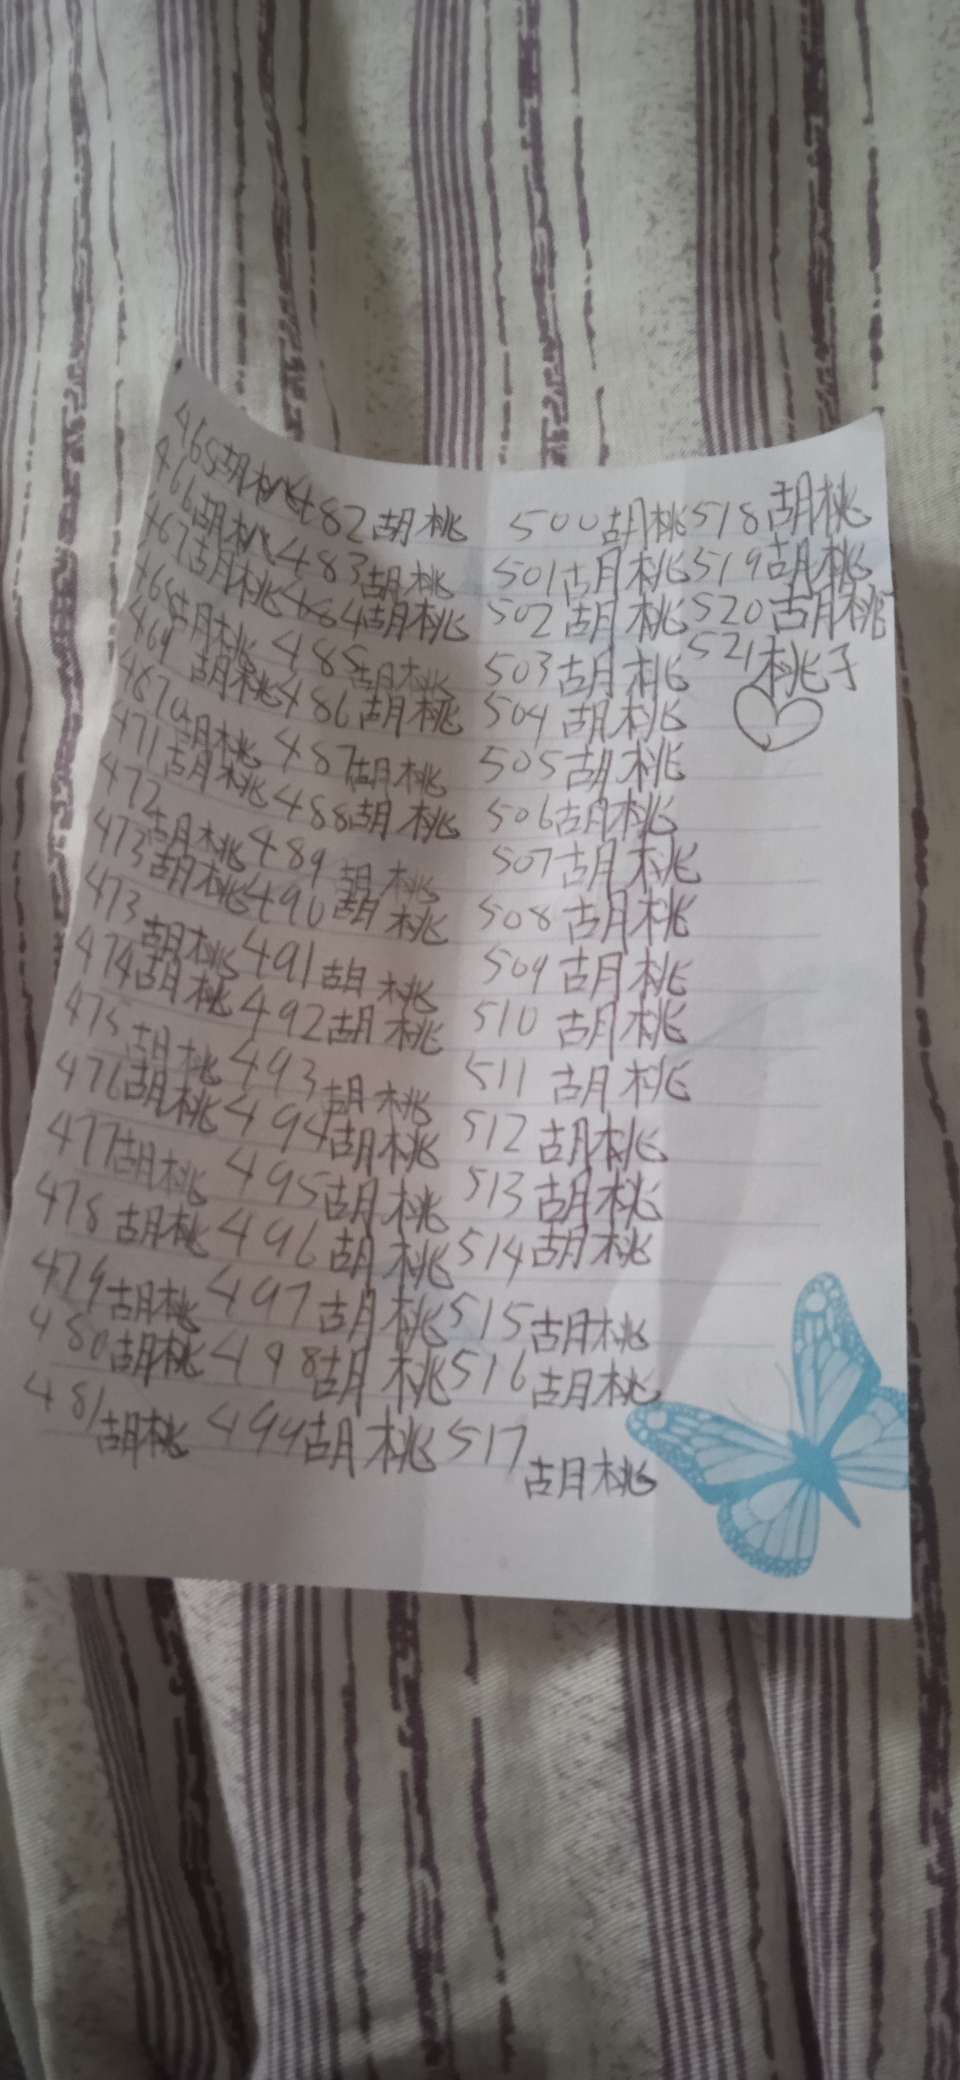 465胡桃
466胡桃
467胡桃
468胡桃
469胡桃
4670胡桃
471胡桃
472胡桃
473胡桃
473胡桃
474胡桃
475胡桃
476胡桃
477胡桃
478胡桃
479胡桃
480胡桃
481胡桃
482胡桃
483胡桃
484胡桃
485胡桃
486胡桃
487胡桃
488胡桃
489胡桃
490胡桃
491胡桃
492胡桃
493胡桃
494胡桃
495胡桃
496胡桃
497胡桃
498胡桃
499胡桃
500胡桃
501胡桃
502胡桃
503胡桃
504胡桃
505胡桃
506胡桃
507胡桃
508胡桃
509胡桃
510胡桃
511胡桃
512胡桃
513胡桃
514胡桃
515胡桃
516胡桃
517胡桃
518胡桃
519胡桃
520胡桃
521桃子